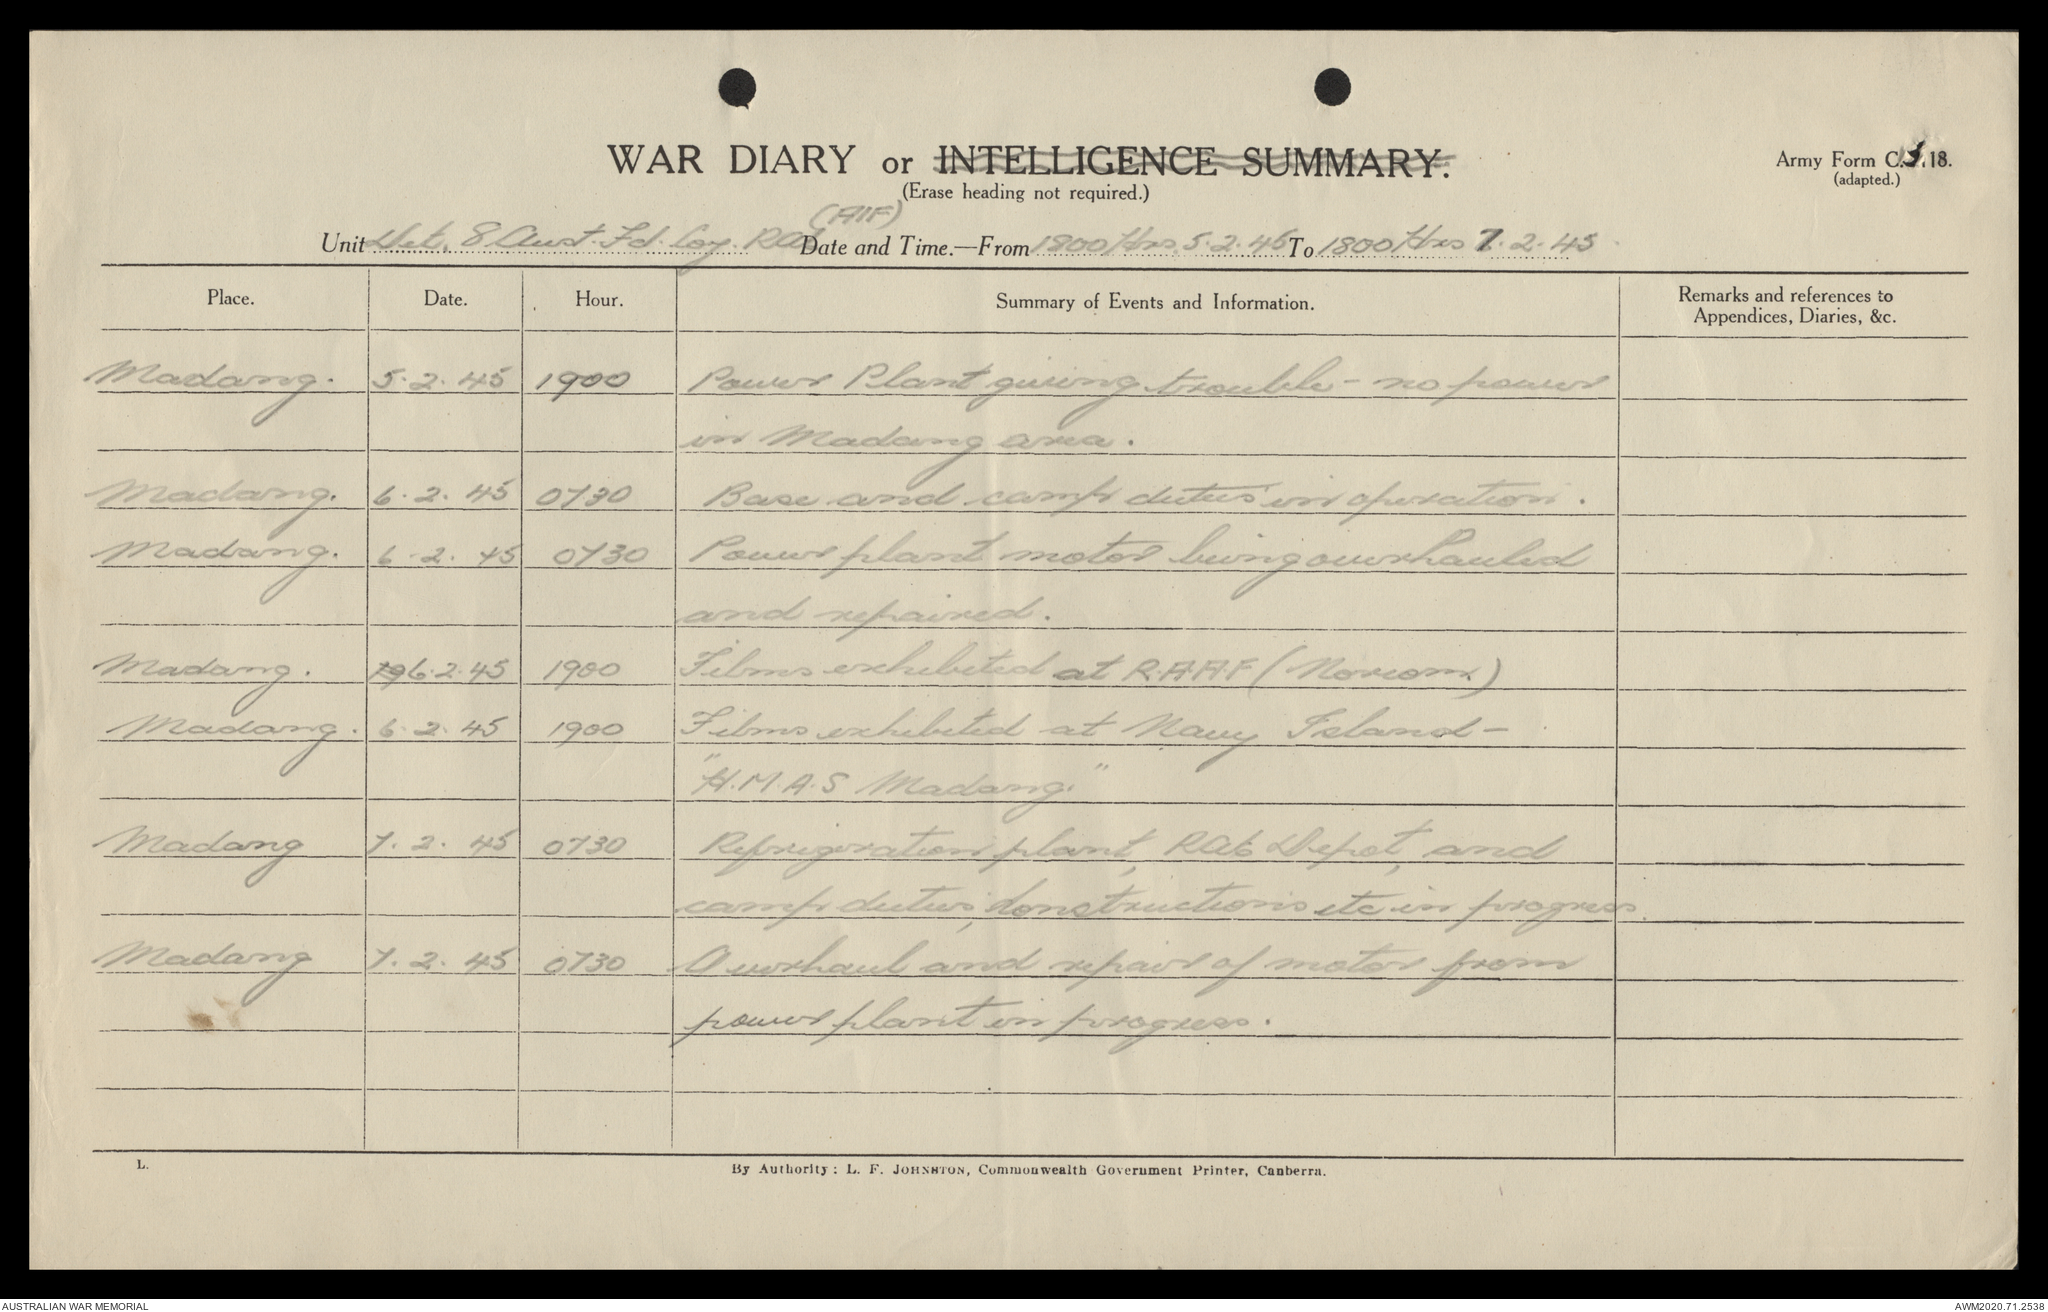 WAR DIARY or INTELLIGENCE SUMMARY.
(Erase heading not required.)
Army Form C.118.
(adapted.)
(AIF)
Unit Det. 8 Aust. Fd. Coy. Date and Time.—From 1800 Hrs. 5.2.45 To 1800 Hrs 7.2.45
Place. Date. Hour. Summary of Events and Information. Remarks and references to
Appendices, Diaries, &c.
Madang. 5.2.45 1900 Power Plant giving trouble - no power
in Madang area.
Madang. 6.2.45 0730 Base and camp duties in operation.
Madang. 6.2.45 0730 Power plant motor being overhauled
and repaired.
Madang. 6.2.45 1900 Films exhibited at R.A.A.F (Norcom.)
Madang. 6.2.45 1900 Films exhibited at Navy Island -
"H.M.A.S Madang."
Madang 7.2.45 0730 Refrigeration plant, Depot, and
camp duties, constructions etc in progress.
Madang 7.2.45 0730 Overhaul and repair of motor from
power plant in progress.
L.
By Authority: L. F. JOHNSTON, Commonwealth Government Printer, Canberra.
AUSTRALIAN WAR MEMORIAL
AWM2020.71.2538